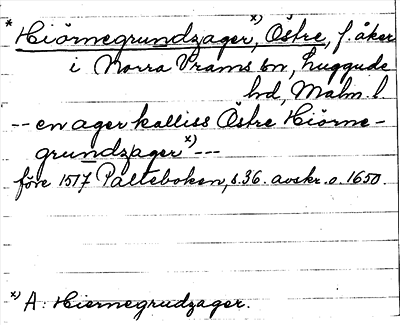 * Hiörnegrundzager, x) Östre, f. åker
i Norra Vrams sn, Luggude
hd, Malm. l.
-- en ager kalliss Östre Hiörne-
grundzager x) ---
före 1517 Palteboken, s. 36. avskr. o. 1650.
x) A: Hiernegrudzager.